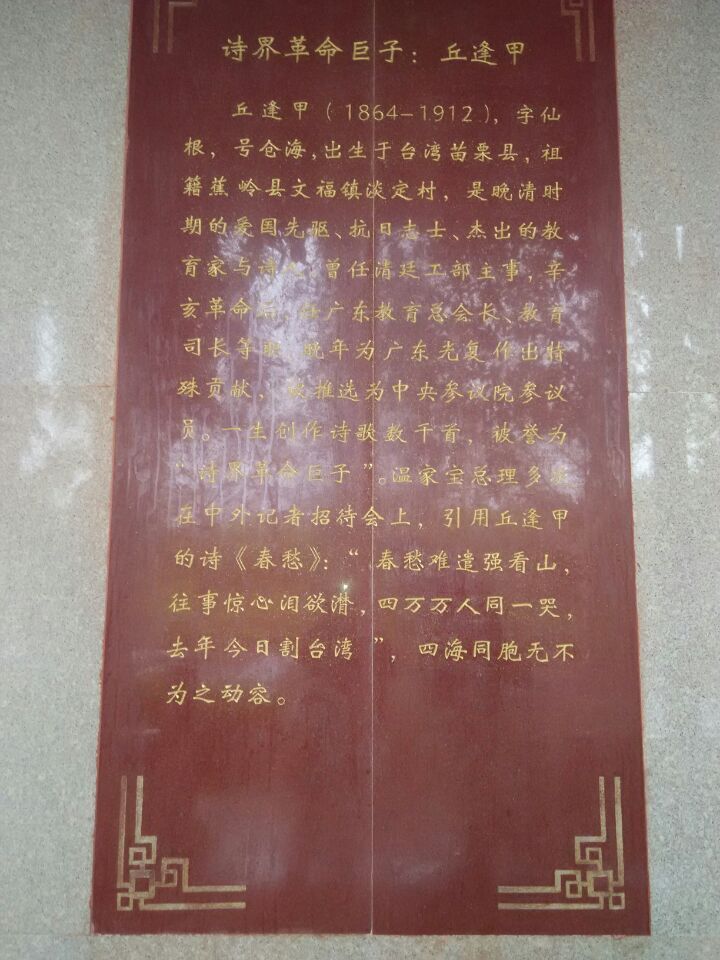 诗界革命巨子：丘逢甲
丘逢甲（1864—1912），字仙
根，号仓海，出生于台湾苗栗县，祖
籍蕉岭县文福镇淡定村，是晚清时
期的爱国先驱、抗日志士、杰出的教
育家与诗人，曾任清廷工部主事，辛
亥革命后，任广东教育总会长、教育
司长等职，晚年为广东光复作出特
殊贡献，被推选为中央参议院参议
员。一生创作诗歌数千首，被誉为
“诗界革命巨子”。温家宝总理多次
在中外记者招待会上，引用丘逢甲
的诗《春愁》：“春愁难遣强看山，
往事惊心泪欲潸，四万万人同一哭，
去年今日割台湾”，四海同胞无不
为之动容。